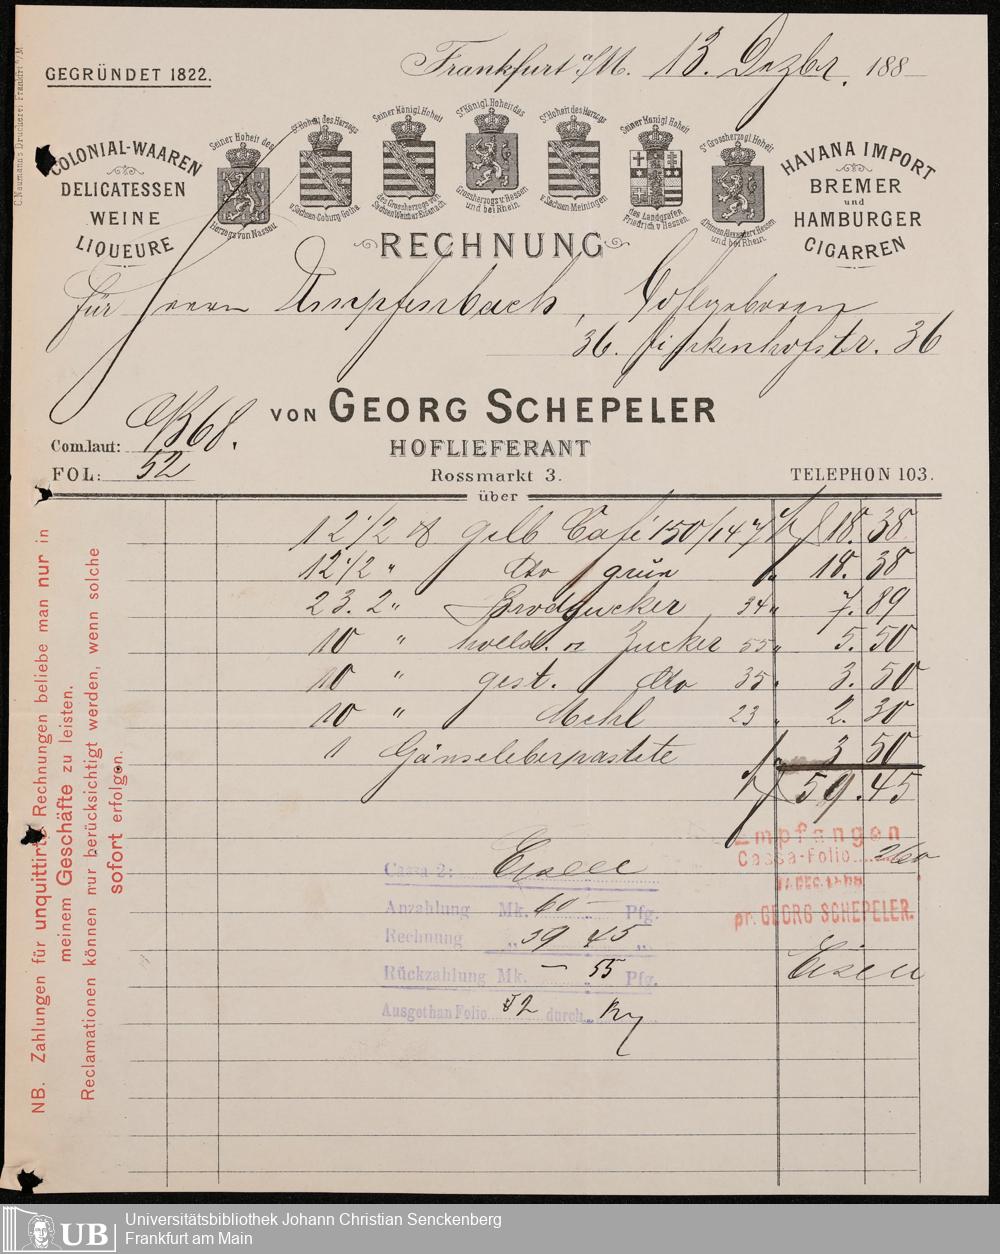 GEGRÜNDET 1822.
Frankfurt a/M. 13. Dezbr. 188
C. Naumann's Druckerei, Frankfurt a/M.
COLONIAL-WAAREN
DELICATESSEN
WEINE
LIQUEURE
Seiner Hoheit des Herzogs von Nassau
Sr. Hoheit des Herzogs v. Sachsen-Coburg-Gotha
Seiner Königl. Hoheit des Grossherzogs von Sachsen Weimar Eisenach
Sr. Königl. Hoheit des Grossherzogs v. Hessen und bei Rhein.
Sr. Hoheit des Herzogs v. Sachsen-Meiningen
Seiner Königl. Hoheit des Landgrafen Friedrich v. Hessen.
Sr. Grossherzogl. Hoheit d. Prinzen Alexander v. Hessen und bei Rhein.
HAVANA IMPORT
BREMER
und
HAMBURGER
CIGARREN
RECHNUNG
Für Herrn Umpfenbach,
36. 36
VON GEORG SCHEPELER
HOFLIEFERANT
Com. laut: 68.
FOL: 52
Rossmarkt 3.
TELEPHON 103.
über
12 1/2 ℔ gelb Café 150/147 18. 38
12 1/2 " dto grün " 18. 38
23. 2 " Brodzucker 34 " 7. 89
10 " Zucker 55 " 5. 50
10 " gest. dto 35 " 3. 50
10 " Mehl 23 " 2. 30
1 Gänseleberpastete 3 50
59. 45
NB. Zahlungen für unquittirte Rechnungen beliebe man nur in
meinem Geschäfte zu leisten.
Reclamationen können nur berücksichtigt werden, wenn solche
sofort erfolgen.
Empfangen
Cassa-Folio 260
pr. GEORG SCHEPELER.
Eisen
Cassa 2:
Anzahlung Mk. 60 – Pfg.
Rechnung " 59 45 "
Rückzahlung Mk. – 55 Pfg.
Ausgethan Folio 52 durch
Universitätsbibliothek Johann Christian Senckenberg
Frankfurt am Main
UB